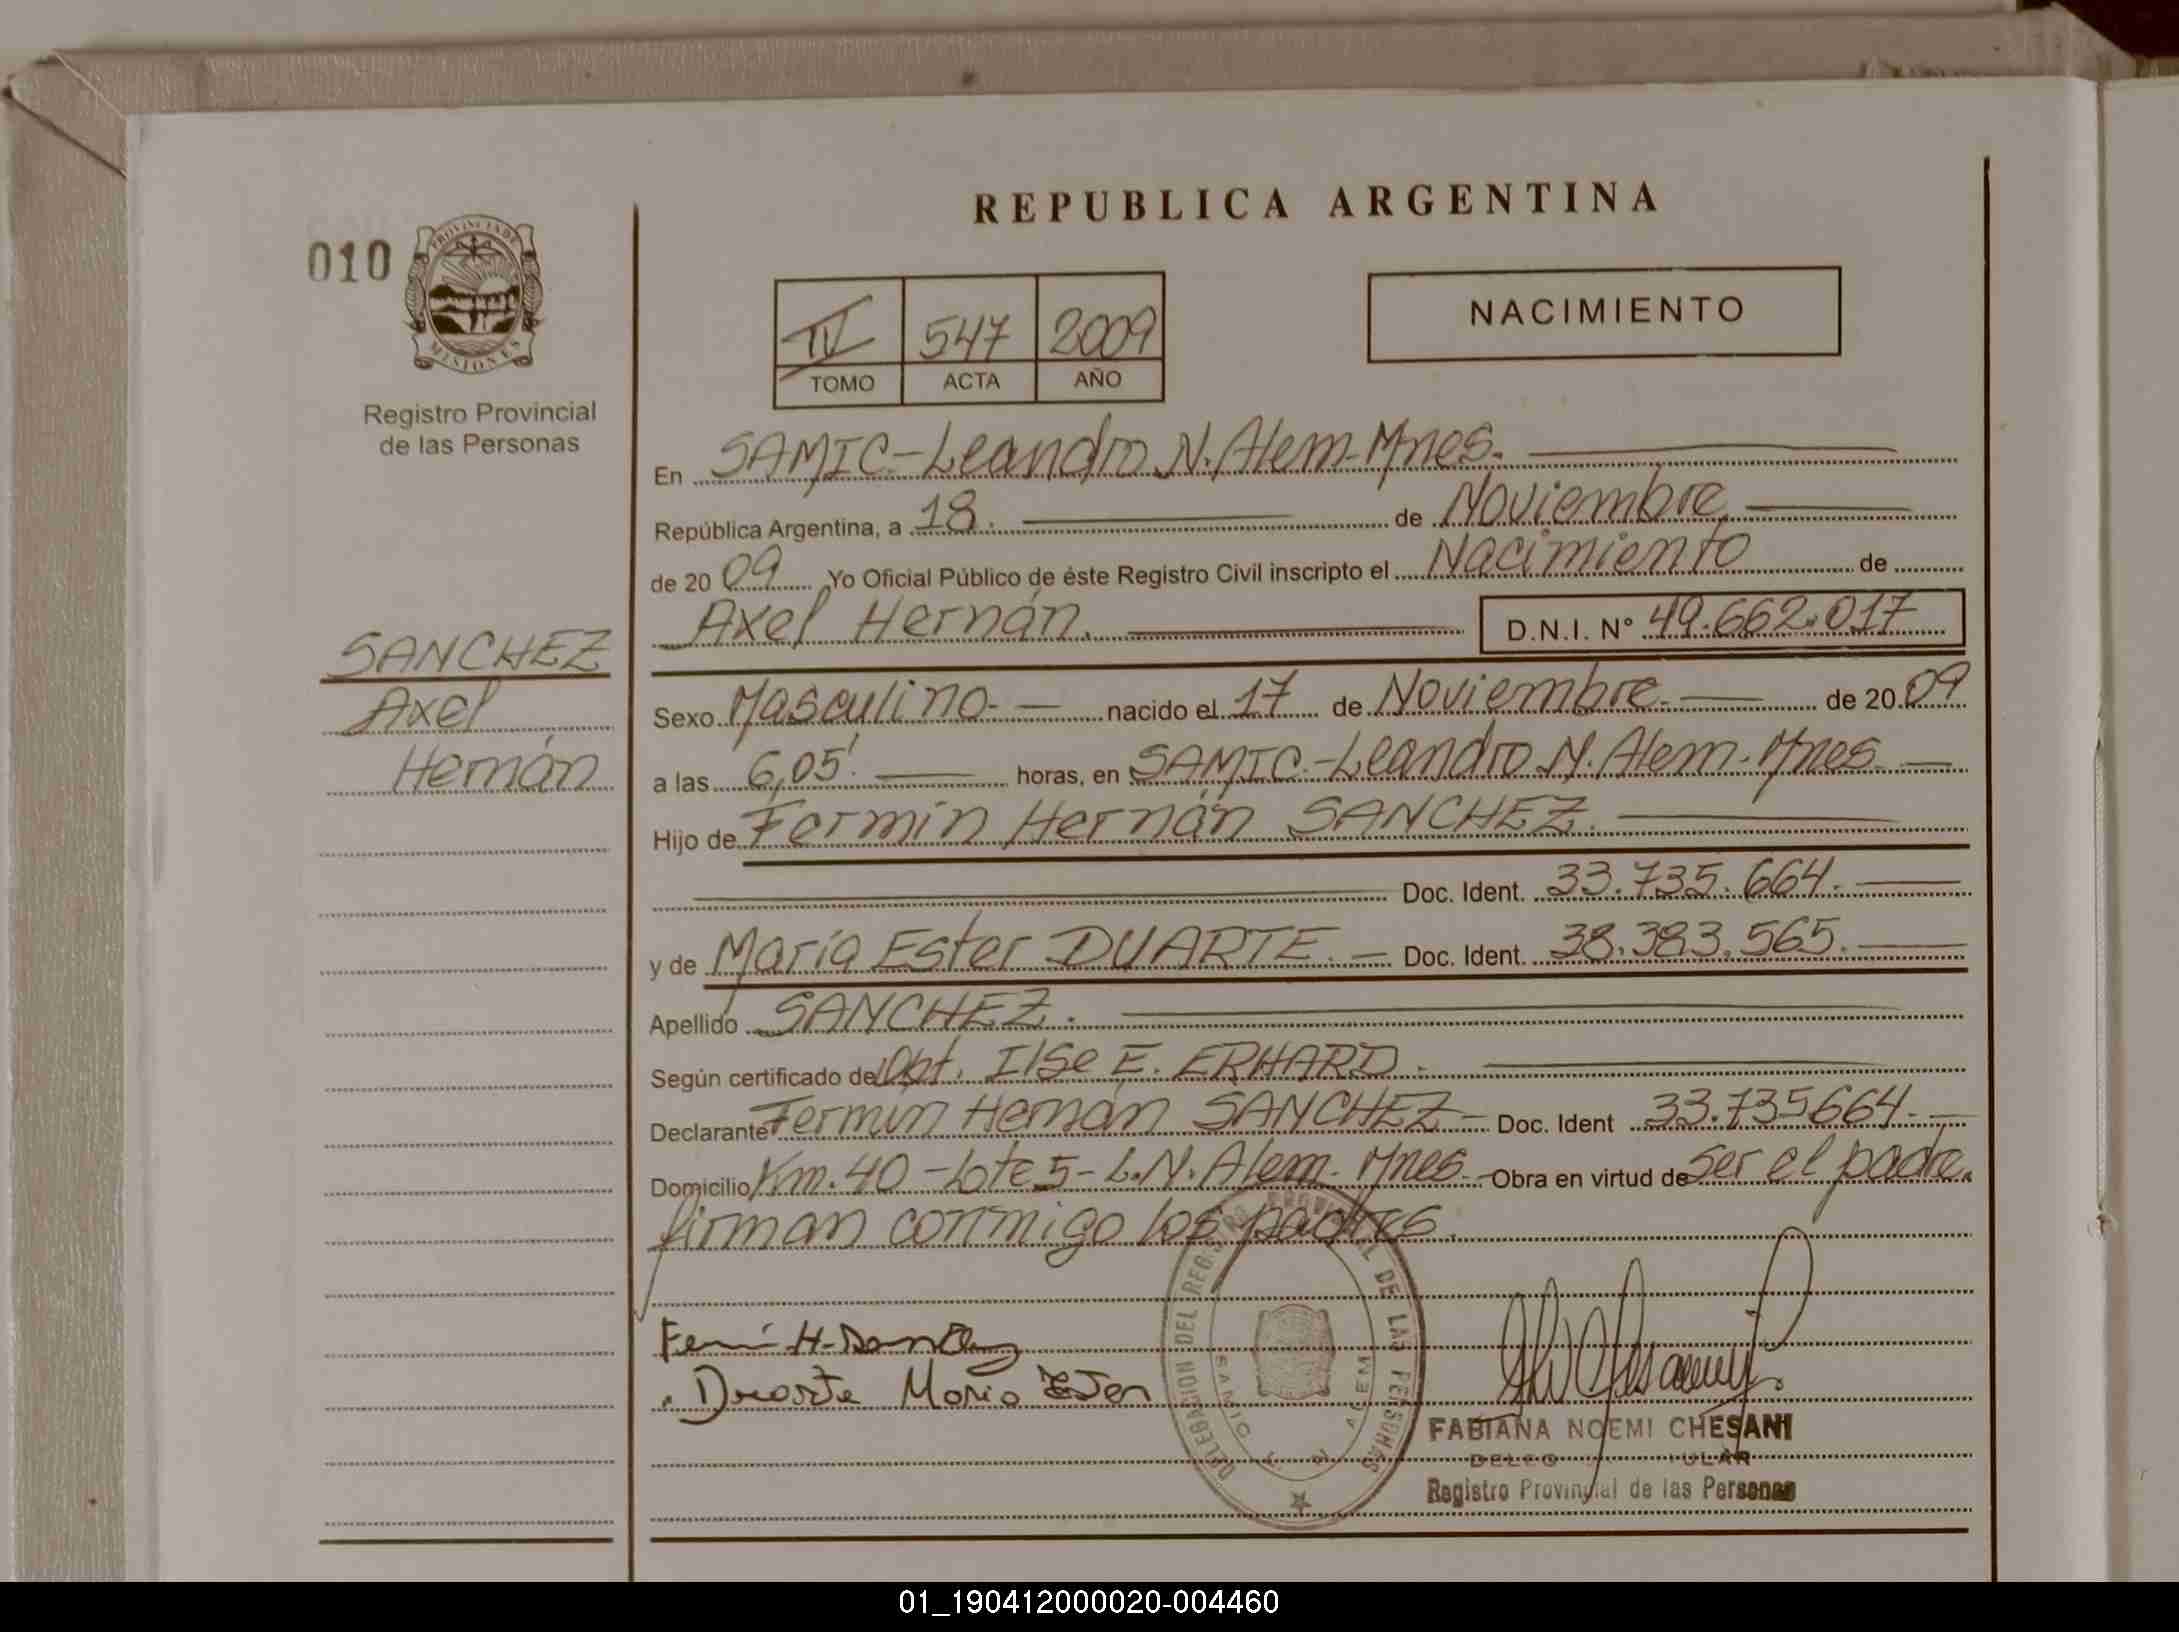 REPUBLICA ARGENTINA
010
PROVINCIA DE
MISIONES
Registro Provincial
de las Personas
IV 547 2009
TOMO ACTA AÑO
NACIMIENTO
En SAMIC-Leandro N. Alem-Mnes.
República Argentina, a 18. de Noviembre
de 2009 Yo Oficial Público de éste Registro Civil inscripto el Nacimiento de
Axel Hernán. D.N.I. N° 49.662.017
SANCHEZ
Axel
Hernán
Sexo Masculino- nacido el 17 de Noviembre- de 2009
a las 6,05' horas, en SAMIC.-Leandro N. Alem-Mnes
Hijo de Fermin Hernán SANCHEZ.
Doc. Ident. 33.735.664.
y de María Ester DUARTE. Doc. Ident. 38.383.565.
Apellido SANCHEZ.
Según certificado de Obt. Ilse E. ERHARD.
Declarante Fermin Hernán SANCHEZ- Doc. Ident 33.735664.
Domicilio Km. 40 -Lote 5- L.N. Alem- Mnes. Obra en virtud de ser el padre.
firman conmigo los padres.
DELEGACION DEL REGISTRO PROVINCIAL DE LAS PERSONAS
L. N. ALEM
Duarte Maria Ester
FABIANA NOEMI CHESANI
Registro Provincial de las Personas
01_190412000020-004460